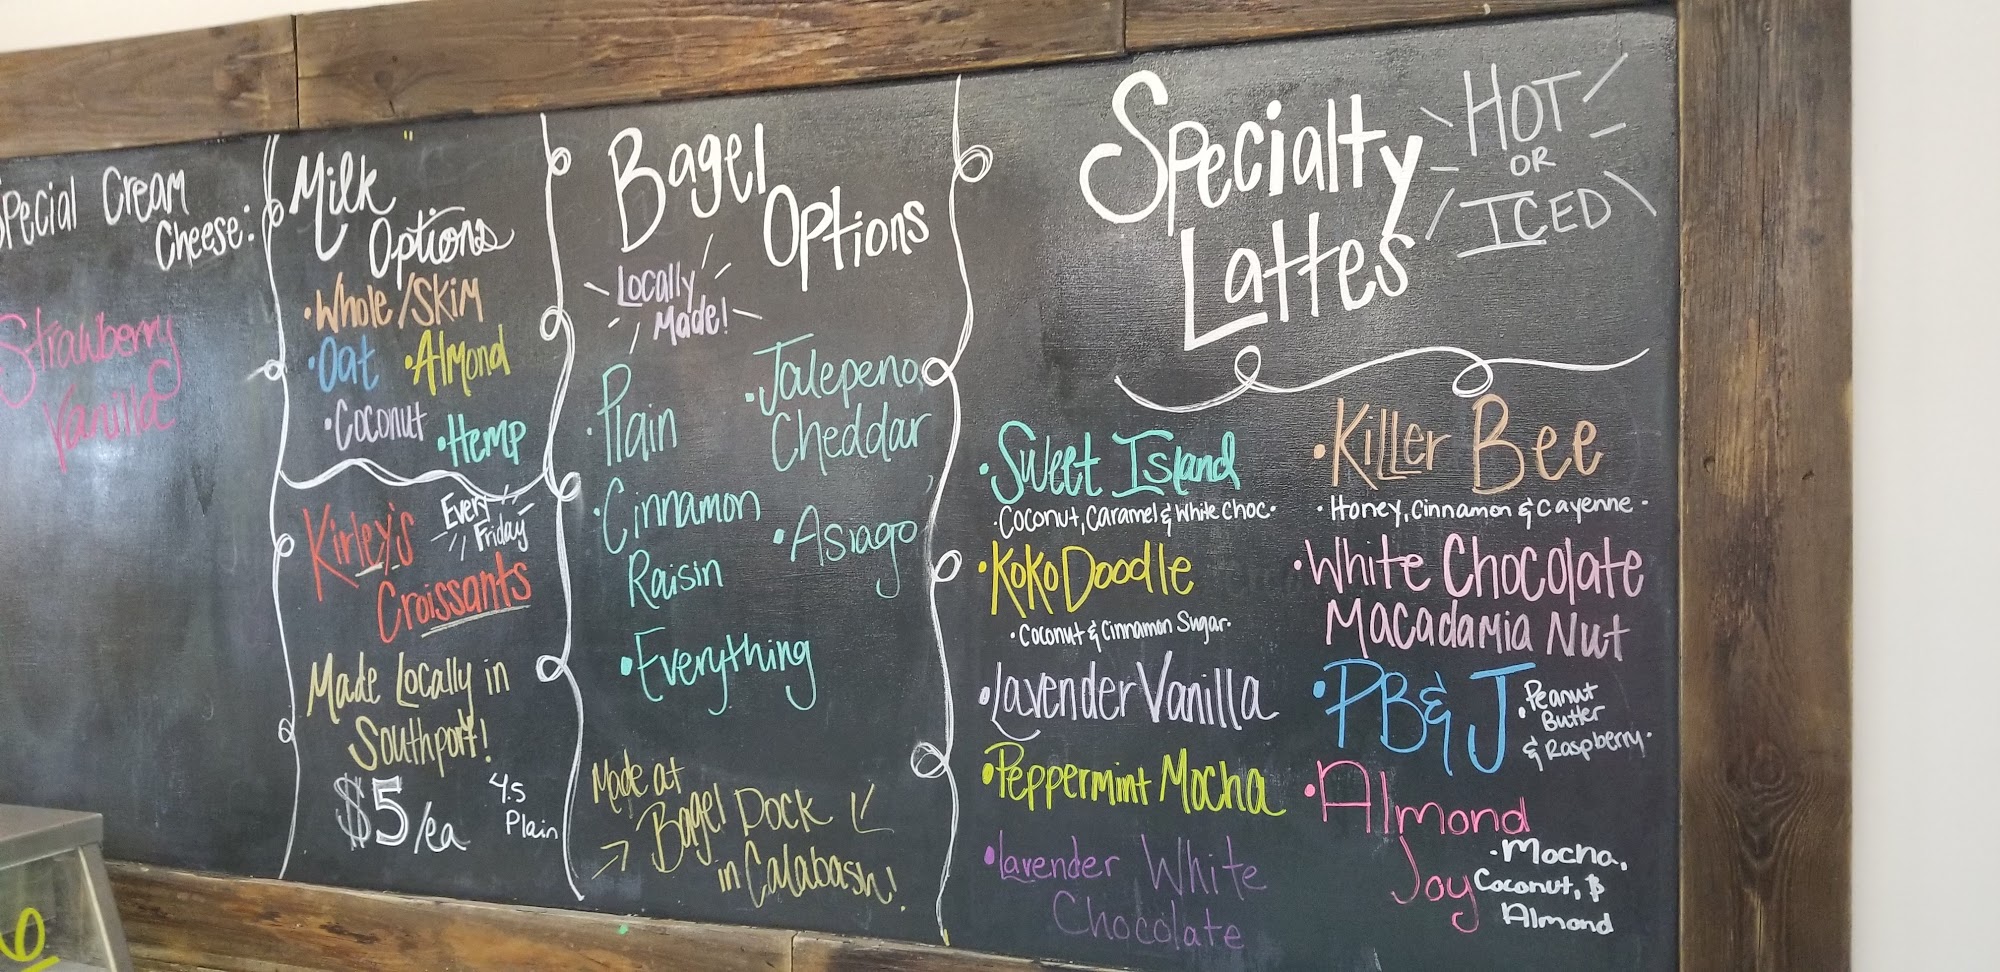 Special Cream
Cheese:
Strawberry
Vanilla
Milk
Options
•Whole/Skim
•Oat •Almond
•Coconut •Hemp
Kirley's
Croissants
Every
Friday
Made Locally in
Southport!
$5/ea
4.5
Plain
Bagel
Options
Locally
Made!
•Plain
•Cinnamon
Raisin
•Everything
•Jalepeno
Cheddar
•Asiago
Made at
Bagel Dock
in Calabash!
Specialty
Lattes
HOT
OR
ICED
•Sweet Island
•Coconut, Caramel & White Choc•
•KoKoDoodle
•Coconut & Cinnamon Sugar•
•Lavender Vanilla
•Peppermint Mocha
•Lavender White
Chocolate
•Killer Bee
•Honey, Cinnamon & Cayenne•
•White Chocolate
Macadamia Nut
•PB&J
•Peanut
Butter
& Raspberry•
•Almond
Joy
•Mocha,
Coconut, &
Almond